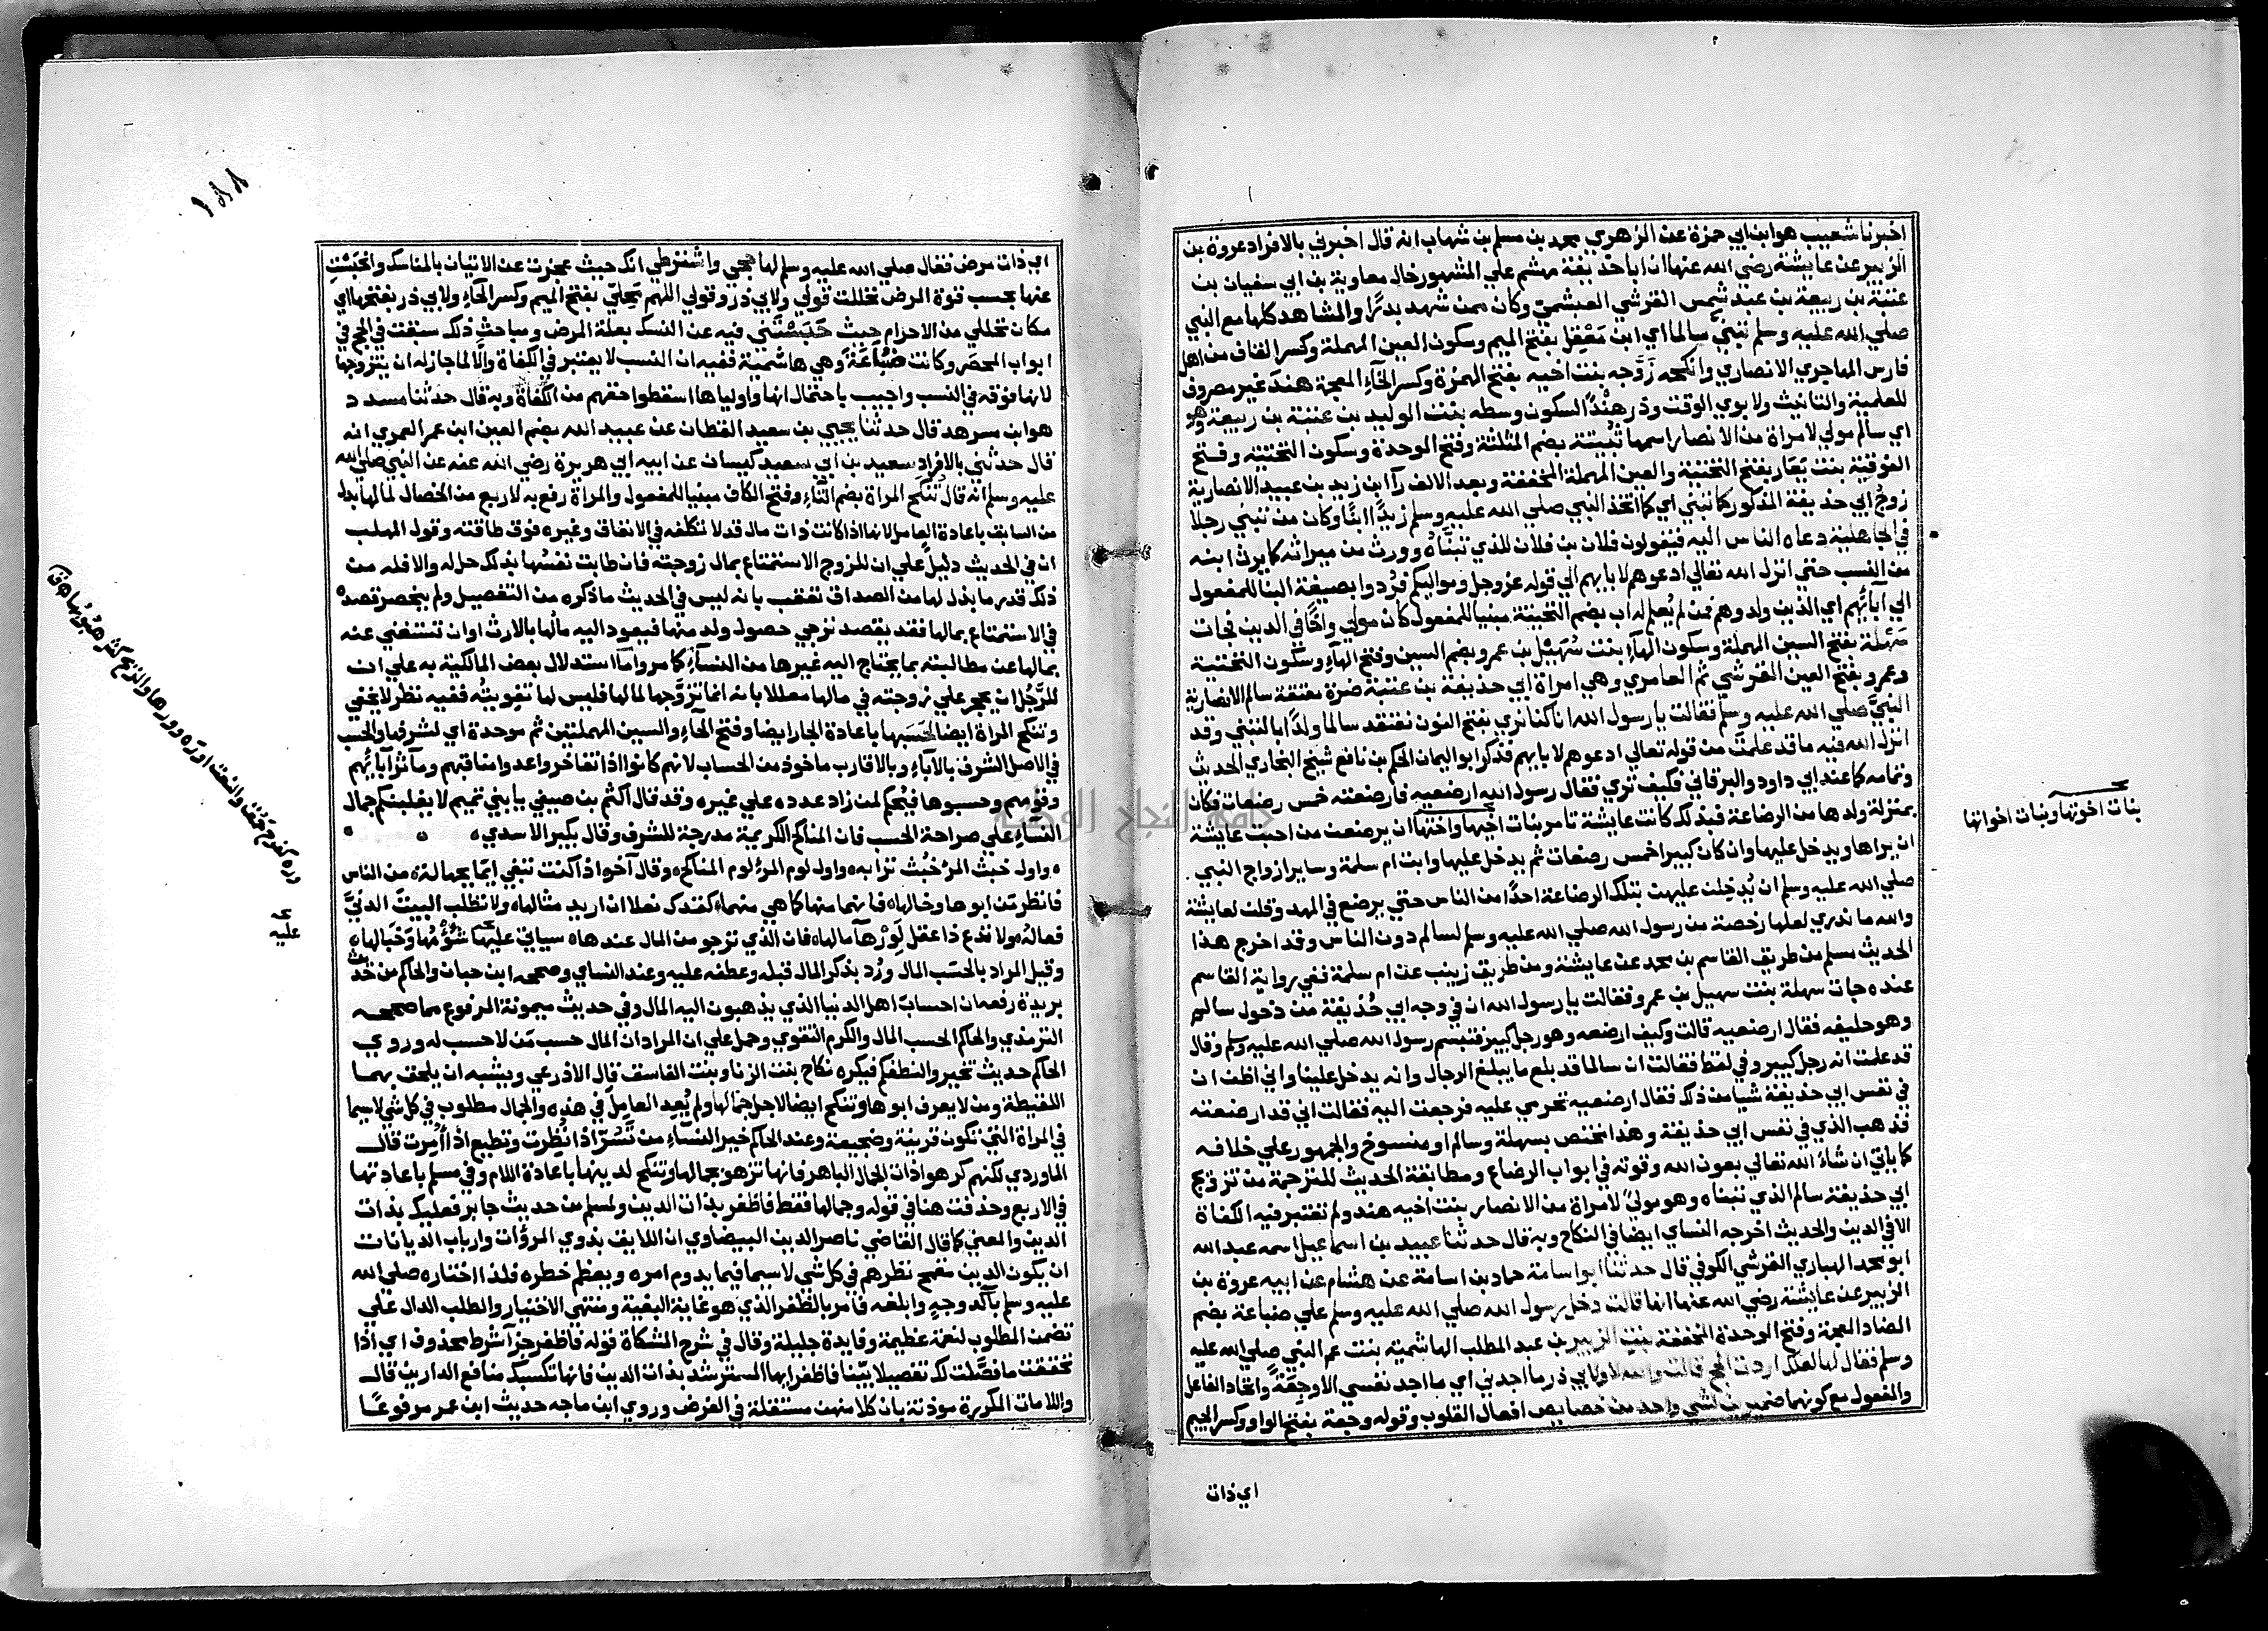 اخبرنا شعيب هو ابن ابي حمزة عن الزهري محمد بن مسلم بن شهاب انه قال اخبرني بالافراد عروة بن
الزبير عن عايشة رضي الله عنها ان ابا حذيفة مهشم علي المشهور خال معاوية بن ابي سفيان بن
عتبة بن ربيعة بن عبد شمس القرشي العبشمي وكان ممن شهد بدرًا والمشاهد كلها مع النبي
صلي الله عليه وسلم تبني سالما اي ابن مَعْقِل بفتح الميم وسكون العين المهملة وكسر القاف من اهل
فارس المهاجري الانصاري وانكحه زوّجه بنت اخيه بفتح الهمزة وكسر الخاء المعجمة هند غير مصروف
للعلمية والتانيث ولابوي الوقت وذر هنْدًا لسكون وسطه بنت الوليد بن عتبة بن ربيعة وهو
اي سالم مولي لامراة من الانصار اسمها ثُبيتة بضم المثلثة وفتح الموحدة وسكون التحتية وفتح
الفوقية بنت يَعَار بفتح التحتية والعين المهملة المخففة وبعد الالف رآ ابن زيد بن عبيد الانصارية
زوجُ ابي حذيفة المذكور كما تبني اي كما اتخذ النبي صلي الله عليه وسلم زيدًا ابنًا وكان من تبني رجلا
في الجاهلية دعاه الناس اليه فيقولون فلان بن فلان للذي تبنّاه وورث من ميراثه كما يرث ابنه
من النسب حتي انزل الله تعالي ادعوهم لابايهم الي قوله عز وجل ومواليكم فرُدوا بصيغة البنا للمفعول
الي آبائهم اي الذين ولدوهم فمن لم يُعلم له اب بضم التحتية مبنيا للمفعول كان مولي واخًا في الدين فجات
سَهْلة بفتح السين المهملة وسكون الهآء بنت سُهَيْل بن عمرو بضم السين وفتح الهآء وسكون التحتية
وعمرو بفتح العين القرشي ثم العامري وهي امراة ابي حذيفة بن عتبة ضرة معتقة سالم الانصارية
النبيَّ صلي الله عليه وسلم فقالت يا رسول الله انا كنا نري بفتح النون نعتقد سالما ولدًا بالتبني وقد
انزل الله فيه ما قد علمتَ من قوله تعالي ادعوهم لابايهم فذكر ابو اليمان الحكم بن نافع شيخ البخاري الحديث
وتمامه كما عند ابي داود والبرقاني فكيف تري فقال رسول الله ارضعيه فارضعته خمس رضعات فكان
بمنزلة ولدها من الرضاعة فبذلك كانت عايشة تامر بنات اخيها واختها ان يرضعن من احبت عايشة
ان يراها ويدخل عليها وان كان كبيرا خمس رضعات ثم يدخل عليها وابت ام سلمة وساير ازواج النبي
صلي الله عليه وسلم ان يُدخِلن عليهن بتلك الرضاعة احدًا من الناس حتي يرضع في المهد وقلن لعايشة
والله ما ندري لعلها رخصة من رسول الله صلي الله عليه وسلم لسالم دون الناس وقد اخرج هذا
الحديث مسلم من طريق القاسم بن محمد عن عايشة ومن طريق زينب عن ام سلمة ففي رواية القاسم
عنده جات سهلة بنت سهيل بن عمرو فقالت يا رسول الله ان في وجه ابي حُذيفة من دخول سالم
وهو حليفه فقال ارضعيه قالت وكيف ارضعه وهو رجل كبير فتبسم رسول الله صلي الله عليه وسلم وقال
قد علمت انه رجل كبير وفي لفظ فقالت ان سالما قد بلغ ما يبلغ الرجال وانه يدخل علينا واني اظن ان
في نفس ابي حذيفة شيا من ذلك فقال ارضعيه تحرمي عليه فرجعت اليه فقالت اني قد ارضعته
فذهب الذي في نفس ابي حذيفة وهذا مختص بسهلة وسالم او منسوخ والجمهور علي خلافه
كما ياتي ان شاء الله تعالي بعون الله وقوته في ابواب الرضاع ومطابقة الحديث للترجمة من تزويج
ابي حذيفة سالم الذي تبناه وهو مولي لامراة من الانصار بنت اخيه هند ولم تعتبر فيه الكفاة
الا في الدين والحديث اخرجه النساي ايضا في النكاح وبه قال حدثنا عبيد بن اسماعيل اسمه عبد الله
ابو محمد الهباري القرشي الكوفي قال حدثنا ابو اسامة حماد بن اسامة عن هشام عن ابيه عروة بن
الزبير عن عايشة رضي الله عنها انها قالت دخل رسول الله صلي الله عليه وسلم علي ضباعة بضم
الضاد المعجمة وفتح الموحدة المخففة بنت الزبير بن عبد المطلب الهاشمية بنت عم النبي صلي الله عليه
وسلم فقال لها لعلك اردت الحج قالت والله لا ولابي ذر ما اجدني اي ما اجد نفسي الا وجِعَةً واتحاد الفاعل
والمفعول مع كونهما ضميرين لشي واحد من خصايص افعال القلوب وقوله وجعة بفتح الواو وكسر الجيم
اي ذات
بنات اخوتها وبنات اخواتها
١٨٨
اي ذات مرض فقال صلي الله عليه وسلم لها حجي واشترطي انك حيث عجزت عن الاتيان بالمناسك وانحبستِ
عنها بحسب قوة المرض تحللت قولي ولابي ذر وقولي اللهم مَحِلي بفتح الميم وكسر الحآء ولابي ذر بفتحها اي
مكان تحللي من الاحرام حيث حَبَسْتَني فيه عن النسك بعلة المرض ومباحث ذلك سبقت في الحج في
ابواب المحصر وكانت ضُبَاعَةُ وهي هاشمية ففيه ان النسب لا يعتبر في الكفاة والا لما جاز له ان يتزوجها
لانها فوقه في النسب واجيب باحتمال انها واولياها اسقطوا حقهم من الكفاة وبه قال حدثنا مسدد
هو ابن مسرهد قال حدثنا يحيي بن سعيد القطان عن عبيد الله بضم العين ابن عمر العمري انه
قال حدثني بالافراد سعيد بن ابي سعيد كيسان عن ابيه ابي هريرة رضي الله عنه عن النبي صلي الله
عليه وسلم انه قال تُنكَح المراة بضم التاء وفتح الكاف مبنيا للمفعول والمراة رفع به لاربع من الخصال لمالها بدل
من السابق باعادة العامل لانها اذا كانت ذات مال قد لا تكلفه في الانفاق وغيره فوق طاقته وقول المهلب
ان في الحديث دليلً علي ان للزوج الاستمتاع بمال زوجته فان طابت نفسُها بذلك حل له والا فله من
ذلك قدر ما بذل لها من الصداق تعقب بانه ليس في الحديث ما ذكره من التفصيل ولم ينحصر قصده
في الاستمتاع بمالها فقد يقصد ترجي حصول ولد منها فيعود اليه مالُها بالارث او ان تستغني عنه
بمالها عن مطالبته بما يحتاج اليه غيرها من النسآء كما مر واما استدلال بعض المالكية به علي ان
للرَّجُل ان يحجر علي زوجته في مالها معللا بانه انما تزوَّجها لمالها فليس لها تفويتُه ففيه نظر لا يخفي
وتنكح المراة ايضا لحَسَبها باعادة الجار ايضا وفتح الحآء والسين المهملتين ثم موحدة اي لشرفها والحسب
في الاصل الشرف بالآباء وبالاقارب ماخوذ من الحساب لانهم كانوا اذا تفاخروا عدوا مناقبهم ومآثر آبائهم
وقومهم وحسبوها فيُحكم لمن زاد عدده علي غيره وقد قال اكثم بن صيفي يا بني تميم لا يغلبنكم جمال
النساءِ علي صراحة الحسب فان المناكح الكريمة مدرجة للشرف وقال بكير الاسدي
واول خبث المرْ خُبْث ترابه واول لوم المرْءِ لوم المناكح وقال آخر اذا كنت تبغي ايّما بجهالة من الناس
فانظر مَن ابوها وخالها فانهما منها كما هي منهما كقدك نعلا ان اريد مثالها ولا تطلب البيتَ الدنيَّ
فعالُه ولا تدع ذا عقل لِوَرْهآ مالها فان الذي ترجو من المال عندها سياتي عليها شُؤْمُها وَخَبَالها
وقيل المراد بالحسَب المال ورُد بذكر المال قبله وعطفه عليه وعند النساي وصححه ابن حبان والحاكم من حديث
بريدة رفعه ان احسابَ اهل الدنيا الذي يذهبون اليه المال وفي حديث ميمونة المرفوع مما صححه
الترمذي والحاكم الحسب المال والكرم التقوي وحمل علي ان المراد ان المال حسب مَن لا حسب له وروي
الحاكم حديث تخيروا لنطفكم فيكره نكاح بنت الزنا وبنت الفاسق قال الاذرعي ويشبه ان يلحق بهما
اللقيطة ومن لا يعرف ابوها وتنكح ايضا لاجل جمالها ولم يُعِد العامِلَ في هذه والجمال مطلوب في كل شي لا سيما
في المراة التي تكون قرينة وضجيعة وعند الحاكم خير النسآء من تَسُرّ اذا نُظِرت وتطيع اذا اُمِرت قال
الماوردي لكنهم كرهوا ذات الجمال الباهر فانها تزهو بجمالها وتنكح لدينها باعادة اللام وفي مسلم باعادتها
في الاربع وحذفت هنا في قوله وجمالها فقط فاظفر بذات الدين ولمسلم من حديث جابر فعليك بذات
الدين والمعني كما قال القاضي ناصر الدين البيضاوي ان اللايق بذوي المروآت وارباب الديانات
ان يكون الدين مطمح نظرهم في كل شي لا سيما فيما يدوم امره ويعظم خطره فلذا اختاره صلي الله
عليه وسلم بآكد وجهٍ وابلغه فامر بالظفر الذي هو غاية البغية ومنتهي الاختيار والطلب الدال علي
تضمن المطلوب لنعمة عظيمة وفايدة جليلة وقال في شرح المشكاة قوله فاظفر جزآ شرط محذوف اي اذا
تحققت ما فصَّلت لك تفصيلا بيّنا فاظفر ايها المسترشد بذات الدين فانها تكسبك منافع الدارين قال
واللامات المكررة موذنة بان كلا منهن مستقلة في الغرض وروي ابن ماجه حديث ابن عمر مرفوعًا
عليه